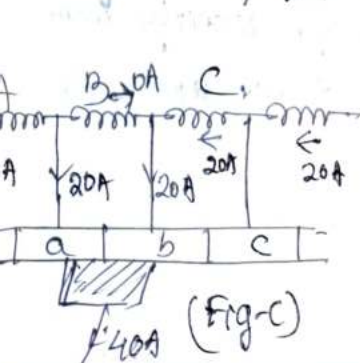 B 0A C.
A 20A 20A 20A 20A
a b c
40A (Fig-C)